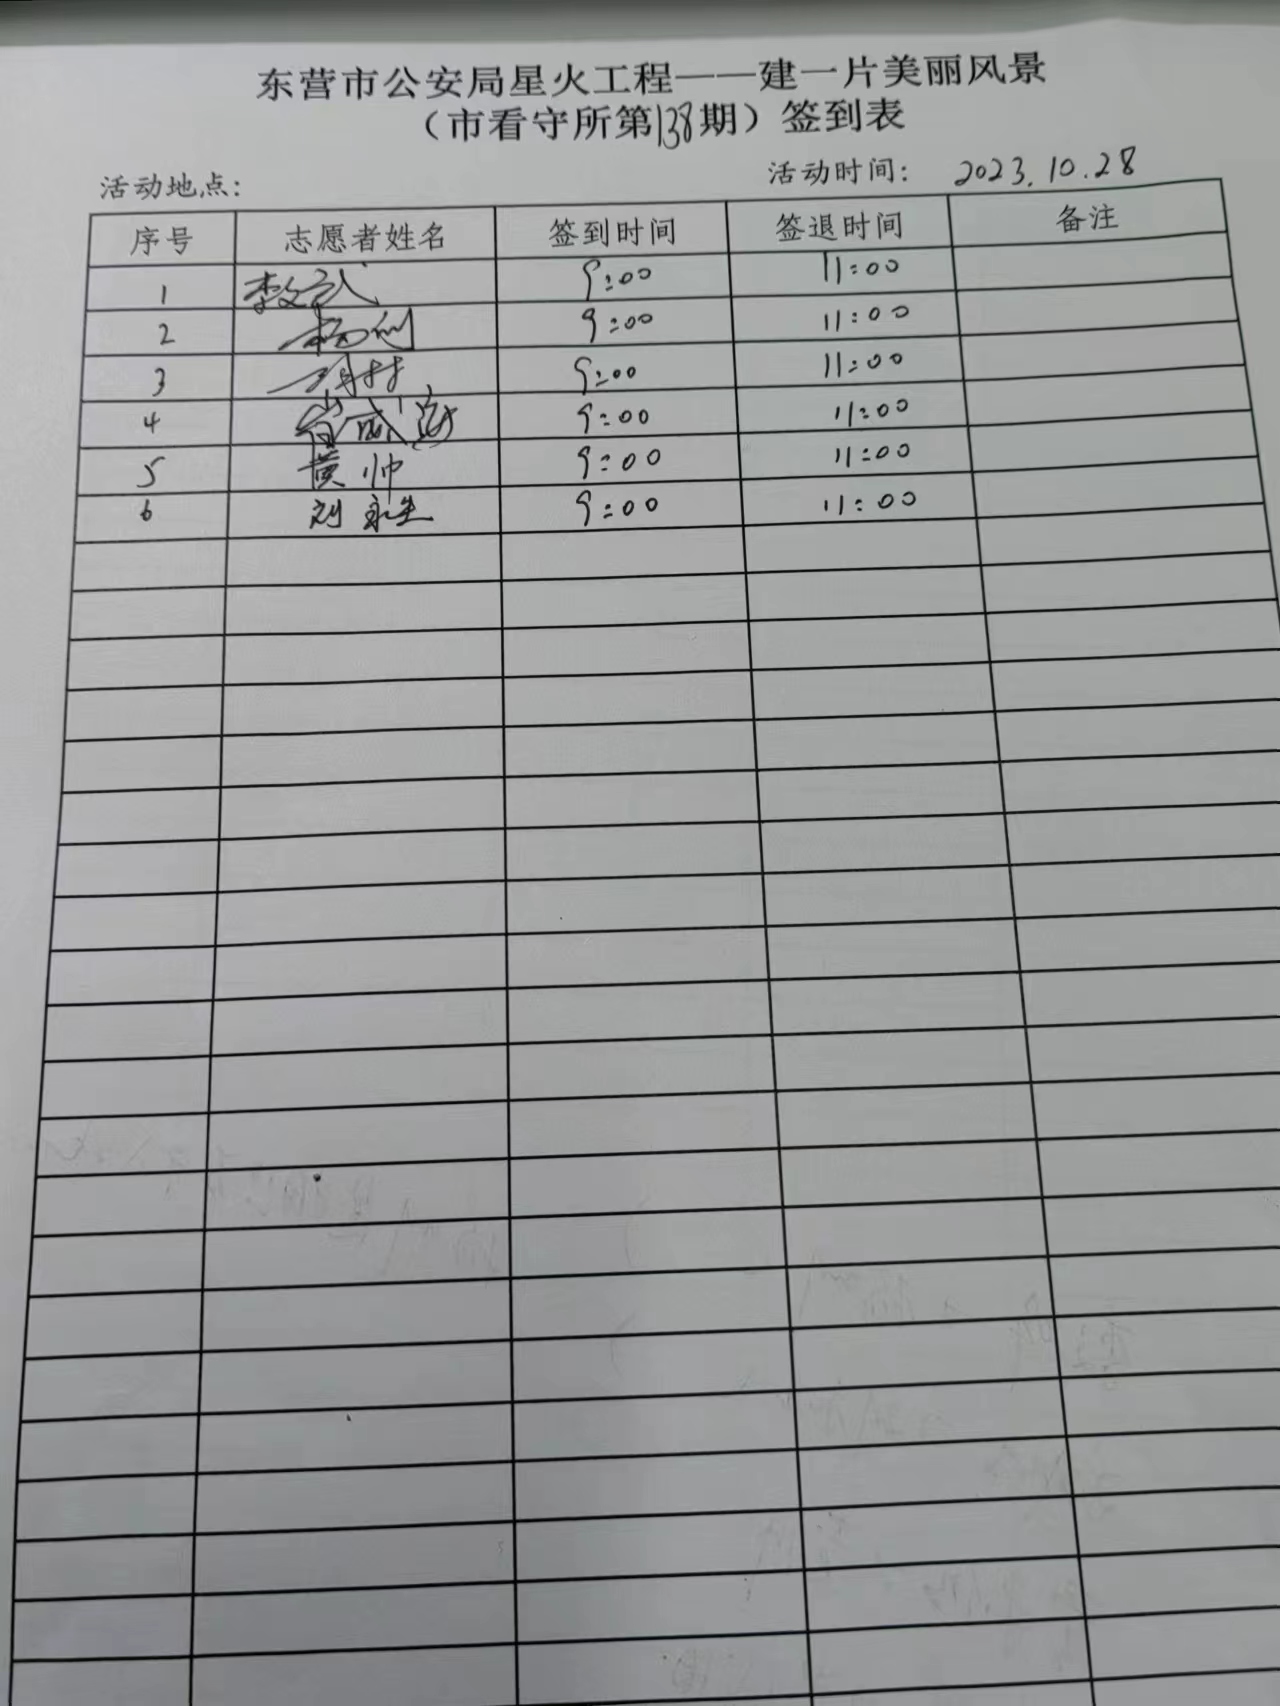 东营市公安局星火工程——建一片美丽风景
（市看守所第138期）签到表
活动地点： 活动时间： 2023.10.28
序号 志愿者姓名 签到时间 签退时间 备注
1 李文武 9:00 11:00
2 杨 9:00 11:00
3 9:00 11:00
4 9:00 11:00
5 黄帅 9:00 11:00
6 刘永生 9:00 11:00